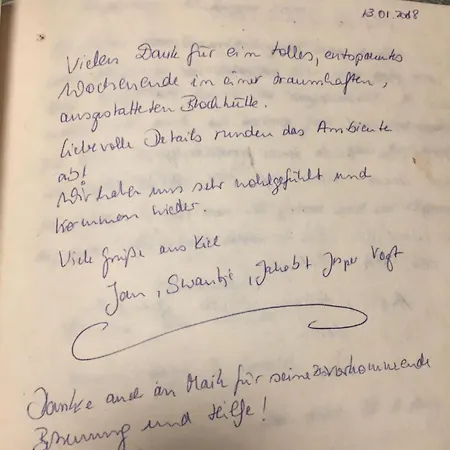 13.01.2018
Vielen Dank für ein tolles, entspanntes
Wochenende in einer traumhaften,
ausgestatteten Blockhütte.
Liebevolle Details runden das Ambiente
ab!
Wir haben uns sehr wohlgefühlt und
kommen wieder.
Viele Grüße aus Kiel
Jan, Swantje, Jakob + Jesper Vogt
Danke auch an Maik für seine zuvorkommende
und Hilfe!